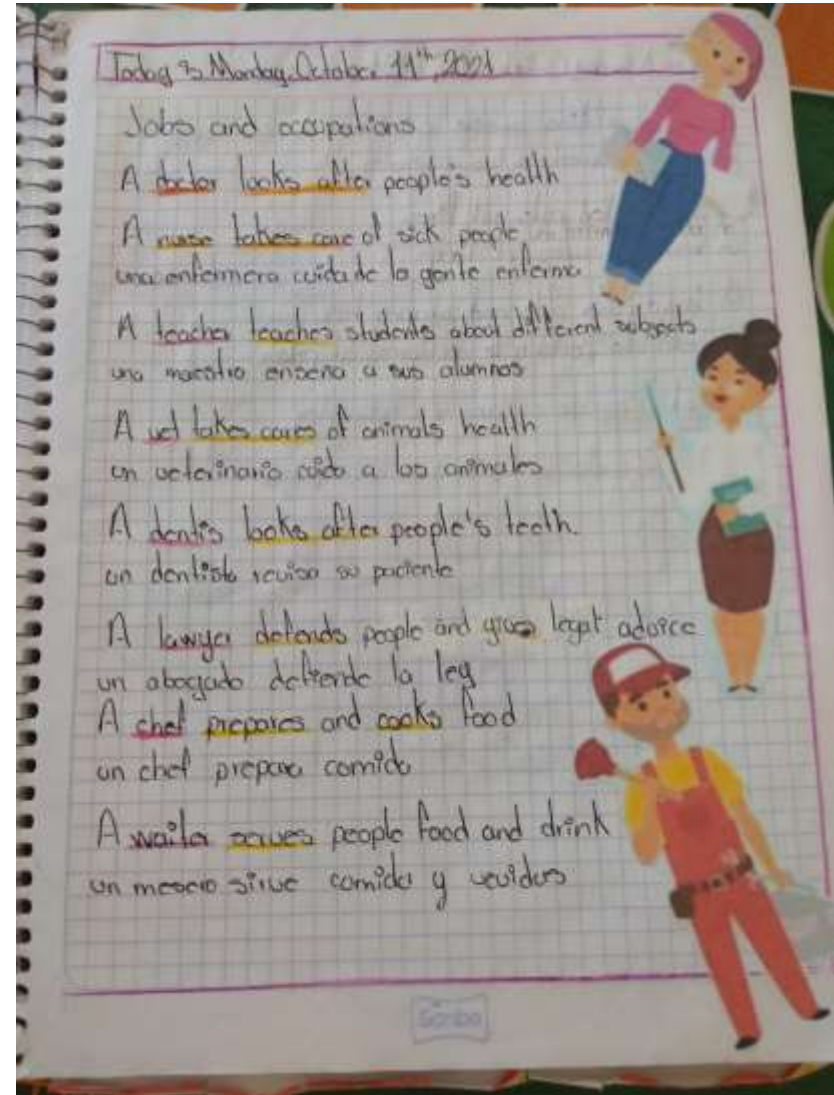 Today is Monday, October 11th, 2021
Jobs and occupations
A doctor looks after people's health
A nurse takes care of sick people
una enfermera cuida de la gente enferma
A teacher teaches students about different subjects
una maestra enseña a sus alumnos
A vet takes cares of animals health
un veterinario cuida a los animales
A dentis looks after people's teeth.
un dentista revisa su paciente
A lawyer defends people and gives legal advice
un abogado defiende la ley
A chef prepares and cooks food
un chef prepara comida
A waiter serves people food and drink
un mesero sirve comida y vevidas
Scribe